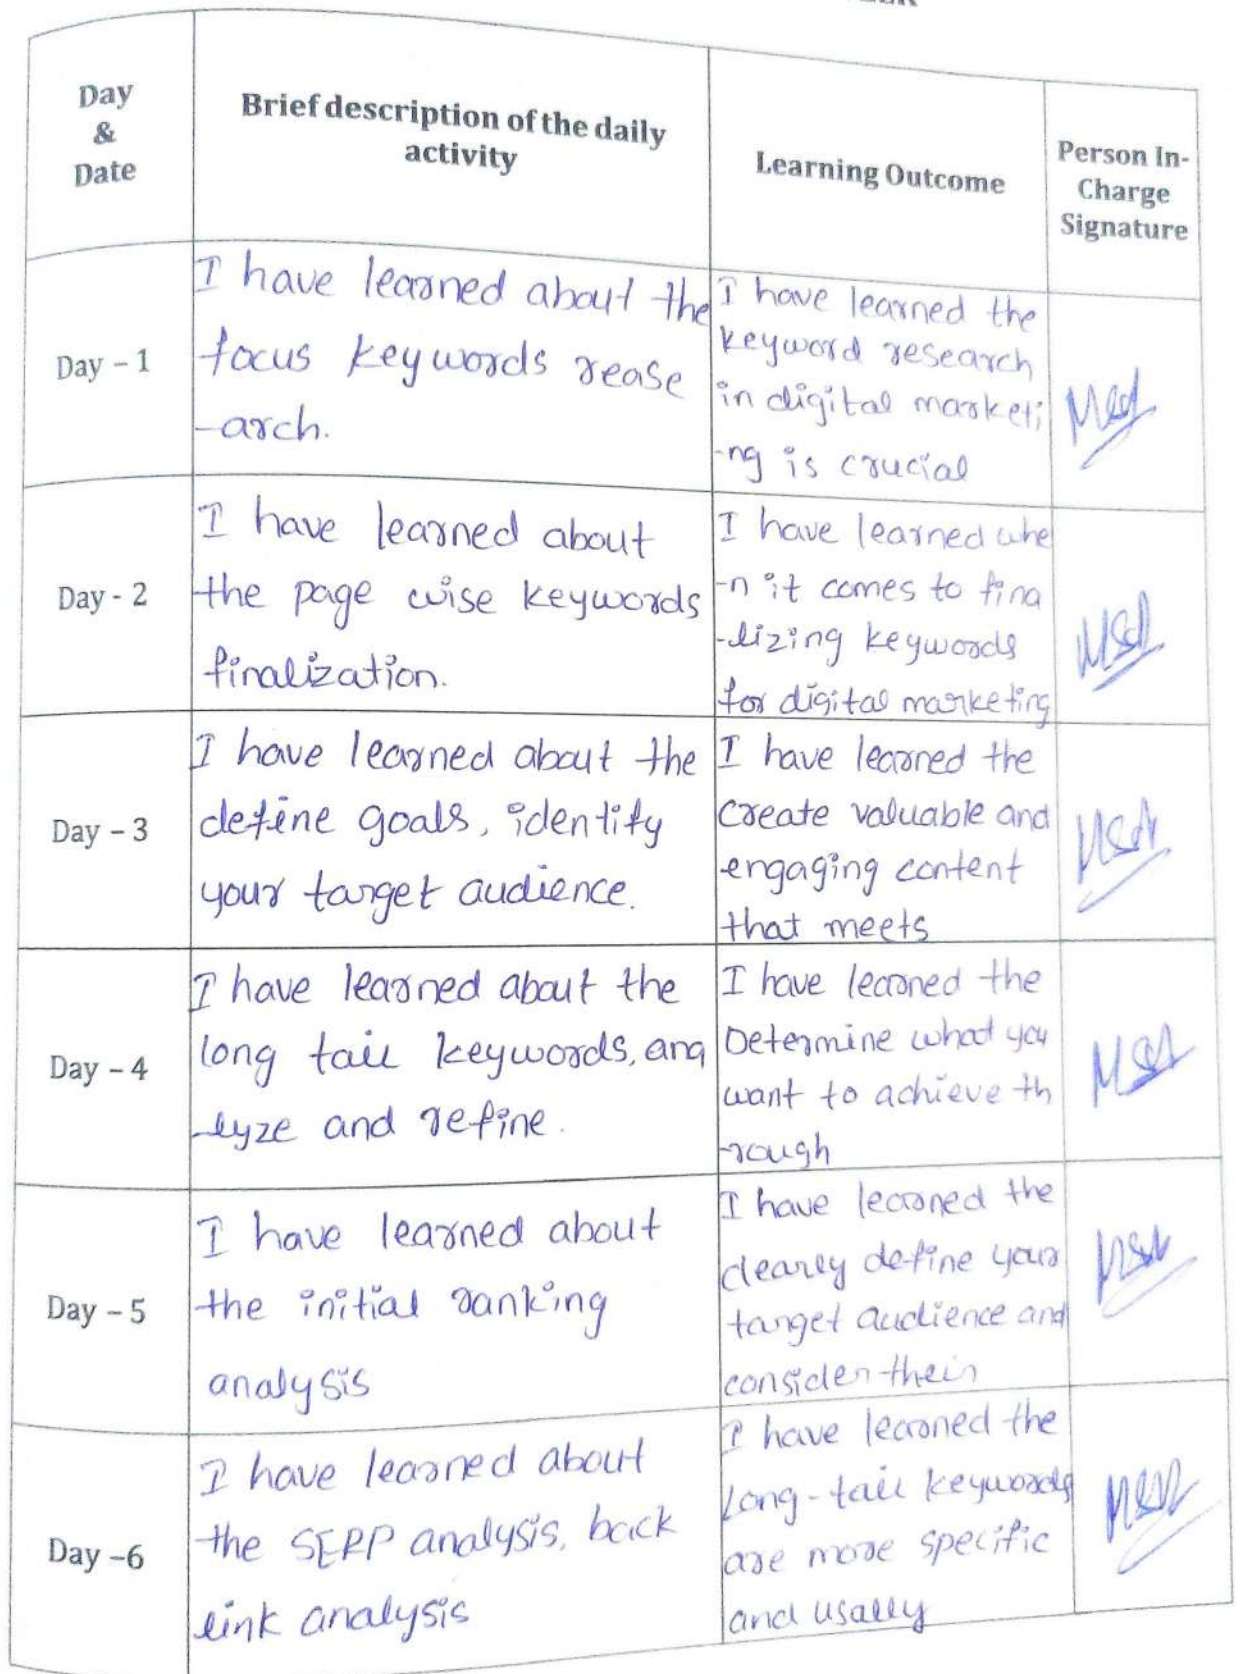 Day
&
Date
Brief description of the daily
activity
Learning Outcome
Person In-
Charge
Signature
Day - 1
I have learned about the
focus keywords rease
-arch.
I have learned the
keyword research
in digital marketi
-ng is crucial
Day - 2
I have learned about
the page wise keywords
finalization.
I have learned whe
-n it comes to fina
-lizing keywords
for digital marketing
Day - 3
I have learned about the
define goals, identify
your target audience.
I have learned the
create valuable and
engaging content
that meets
Day - 4
I have learned about the
long tail keywords, ana
-lyze and refine.
I have learned the
Determine what you
want to achieve th
-rough
Day - 5
I have learned about
the initial ranking
analysis
I have learned the
clearly define your
target audience and
consider their
Day -6
I have learned about
the SERP analysis, back
link analysis
I have learned the
Long-tail keywords
are more specific
and usally